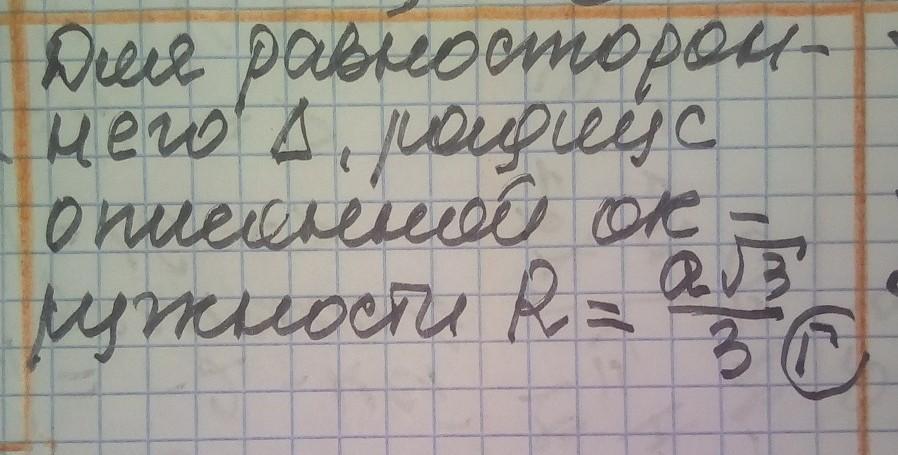 Для равносторон-
него Δ, радиус
описанной ок-
ружности R = a√3/3 Г